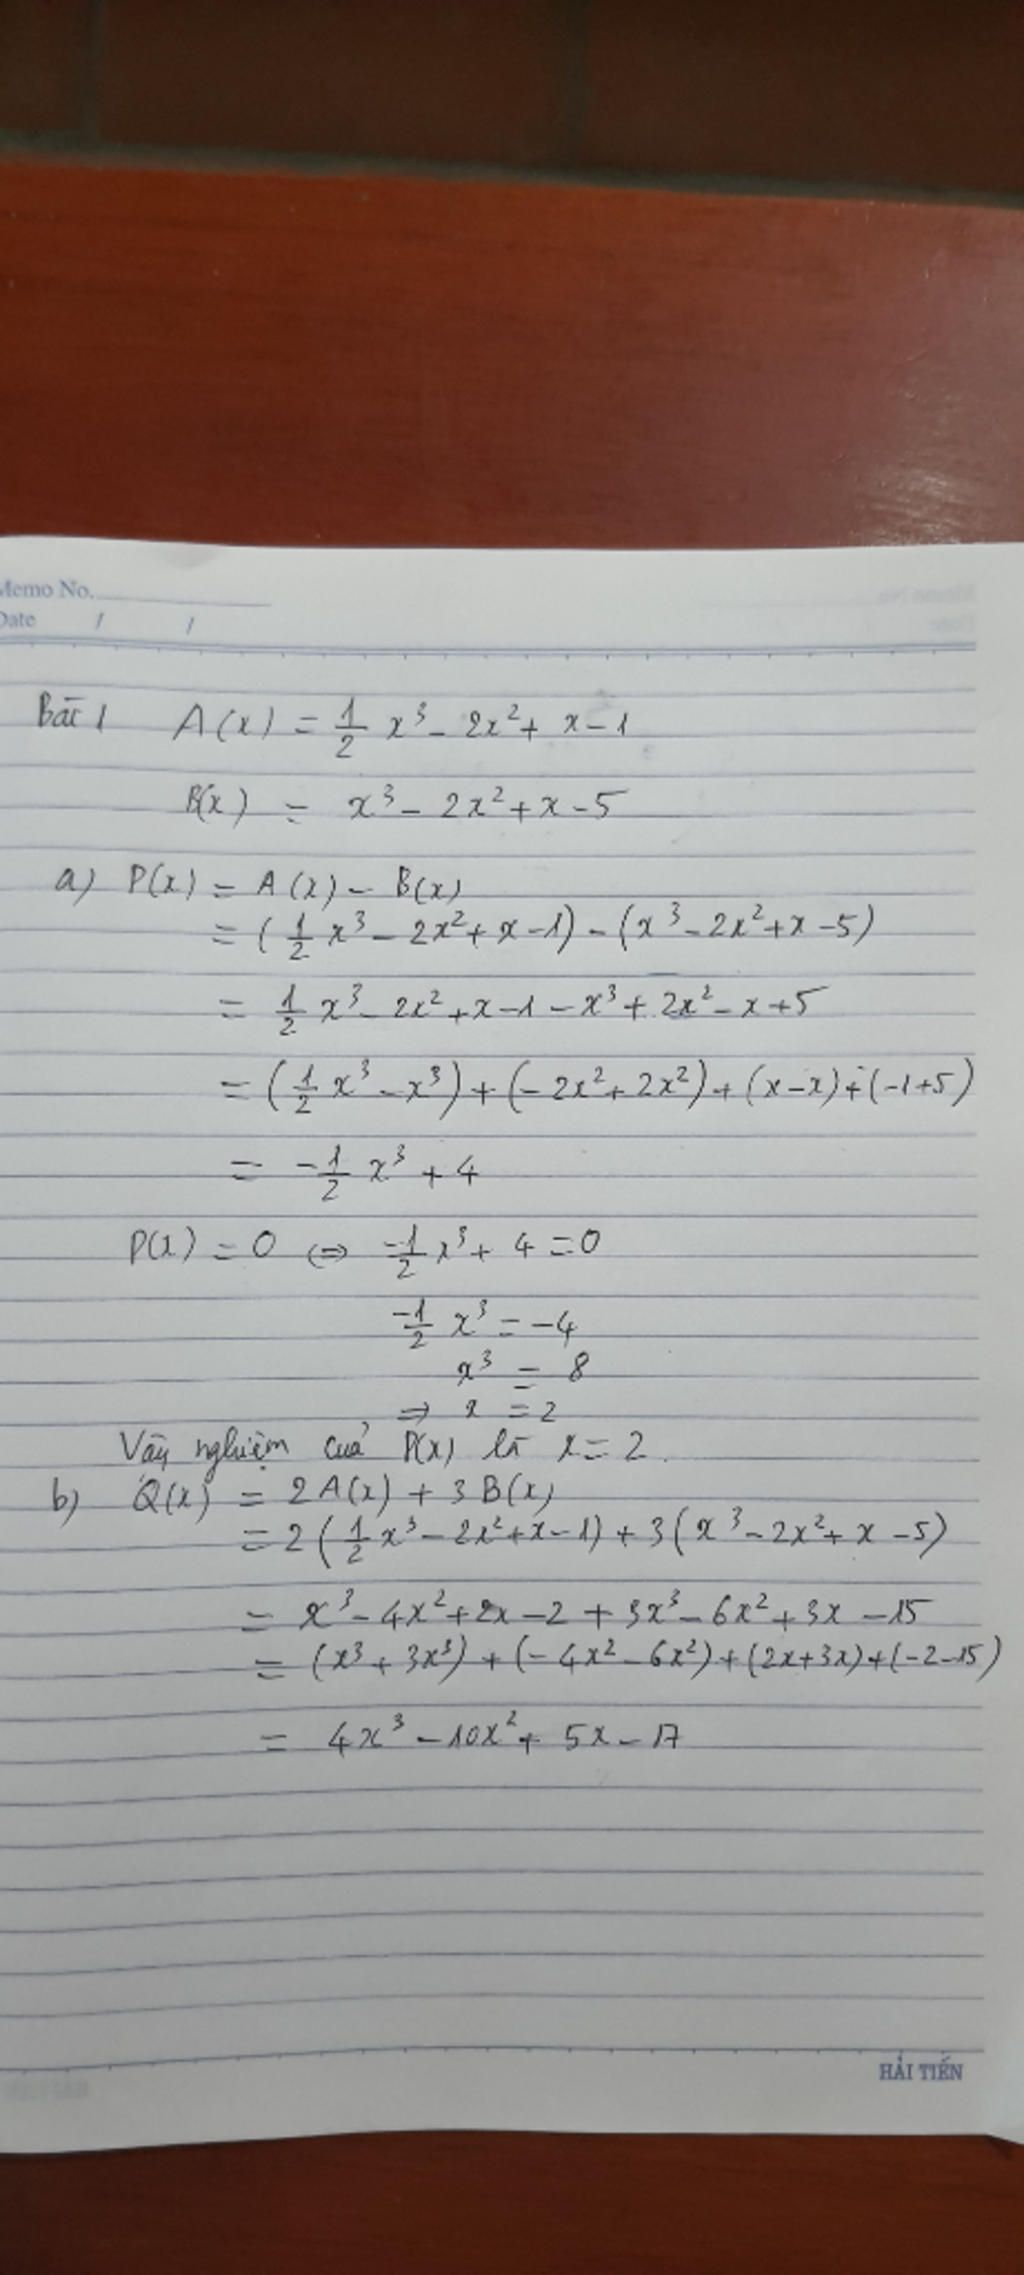 Memo No.
Date / /
Bài 1 A(x) = 1/2 x³ - 2x² + x - 1
B(x) = x³ - 2x² + x - 5
a) P(x) = A(x) - B(x)
= (1/2 x³ - 2x² + x - 1) - (x³ - 2x² + x - 5)
= 1/2 x³ - 2x² + x - 1 - x³ + 2x² - x + 5
= (1/2 x³ - x³) + (-2x² + 2x²) + (x - x) + (-1 + 5)
= -1/2 x³ + 4
P(x) = 0 ⇔ -1/2 x³ + 4 = 0
-1/2 x³ = -4
x³ = 8
⇒ x = 2
Vậy nghiệm của P(x) là x = 2.
b) Q(x) = 2A(x) + 3B(x)
= 2(1/2 x³ - 2x² + x - 1) + 3(x³ - 2x² + x - 5)
= x³ - 4x² + 2x - 2 + 3x³ - 6x² + 3x - 15
= (x³ + 3x³) + (-4x² - 6x²) + (2x + 3x) + (-2 - 15)
= 4x³ - 10x² + 5x - 17
HẢI TIẾN